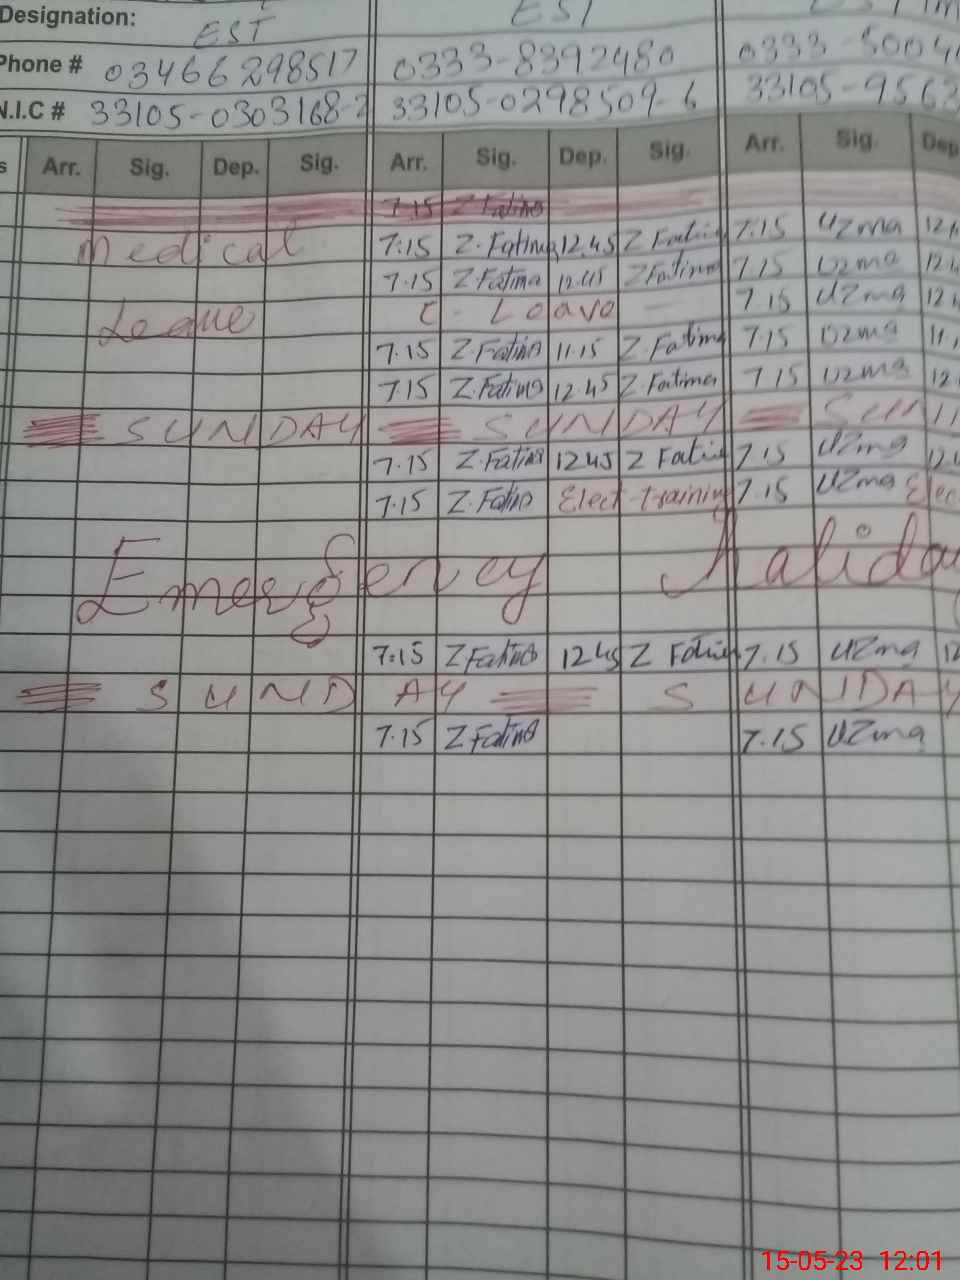 Designation: EST EST
Phone # 03466298517 0333-8392480 0333-5004
N.I.C # 33105-0303168-2 33105-0298509-6 33105-9563
s Arr. Sig. Dep. Sig. Arr. Sig. Dep. Sig. Arr. Sig. Dep
7.15 Z Fatima
Medical 7:15 Z.Fatima 12.45 Z Fatima 7:15 Uzma 12.
7.15 Z Fatima 12.45 Z Fatima 7.15 Uzma 12.
Leave C. Leave 7.15 Uzma 12.
7.15 Z.Fatima 11.15 Z.Fatima 7.15 Uzma 11.
7.15 Z.Fatima 12.45 Z.Fatima 7.15 Uzma 12
SUNDAY SUNDAY SUN
7.15 Z.Fatima 1245 Z Fatima 7.15 Uzma 12.
7.15 Z.Fatima Elect-training 7.15 Uzma Elec
Emergency Haliday
7:15 Z Fatima 1245 Z Fatima 7.15 Uzma 12
SUNDAY SUNDAY
7.15 Z Fatima 7.15 Uzma
15-05-23 12:01